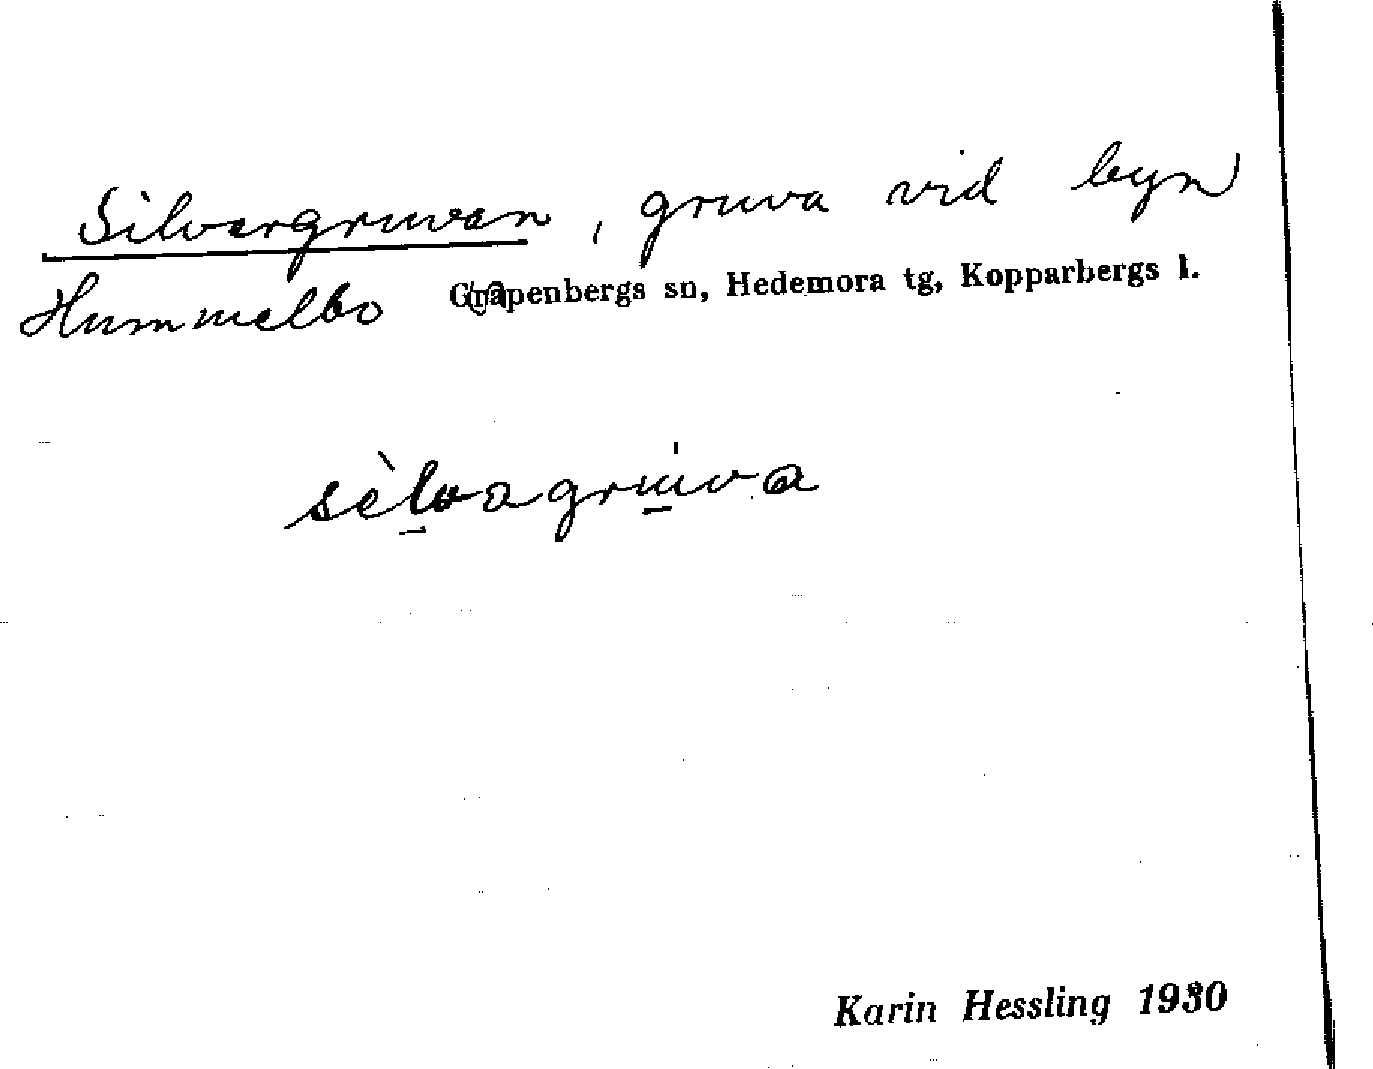 Silvergruvan, gruva vid byn
Hummelbo Garpenbergs sn, Hedemora tg, Kopparbergs l.
sèlvagruva
Karin Hessling 1930